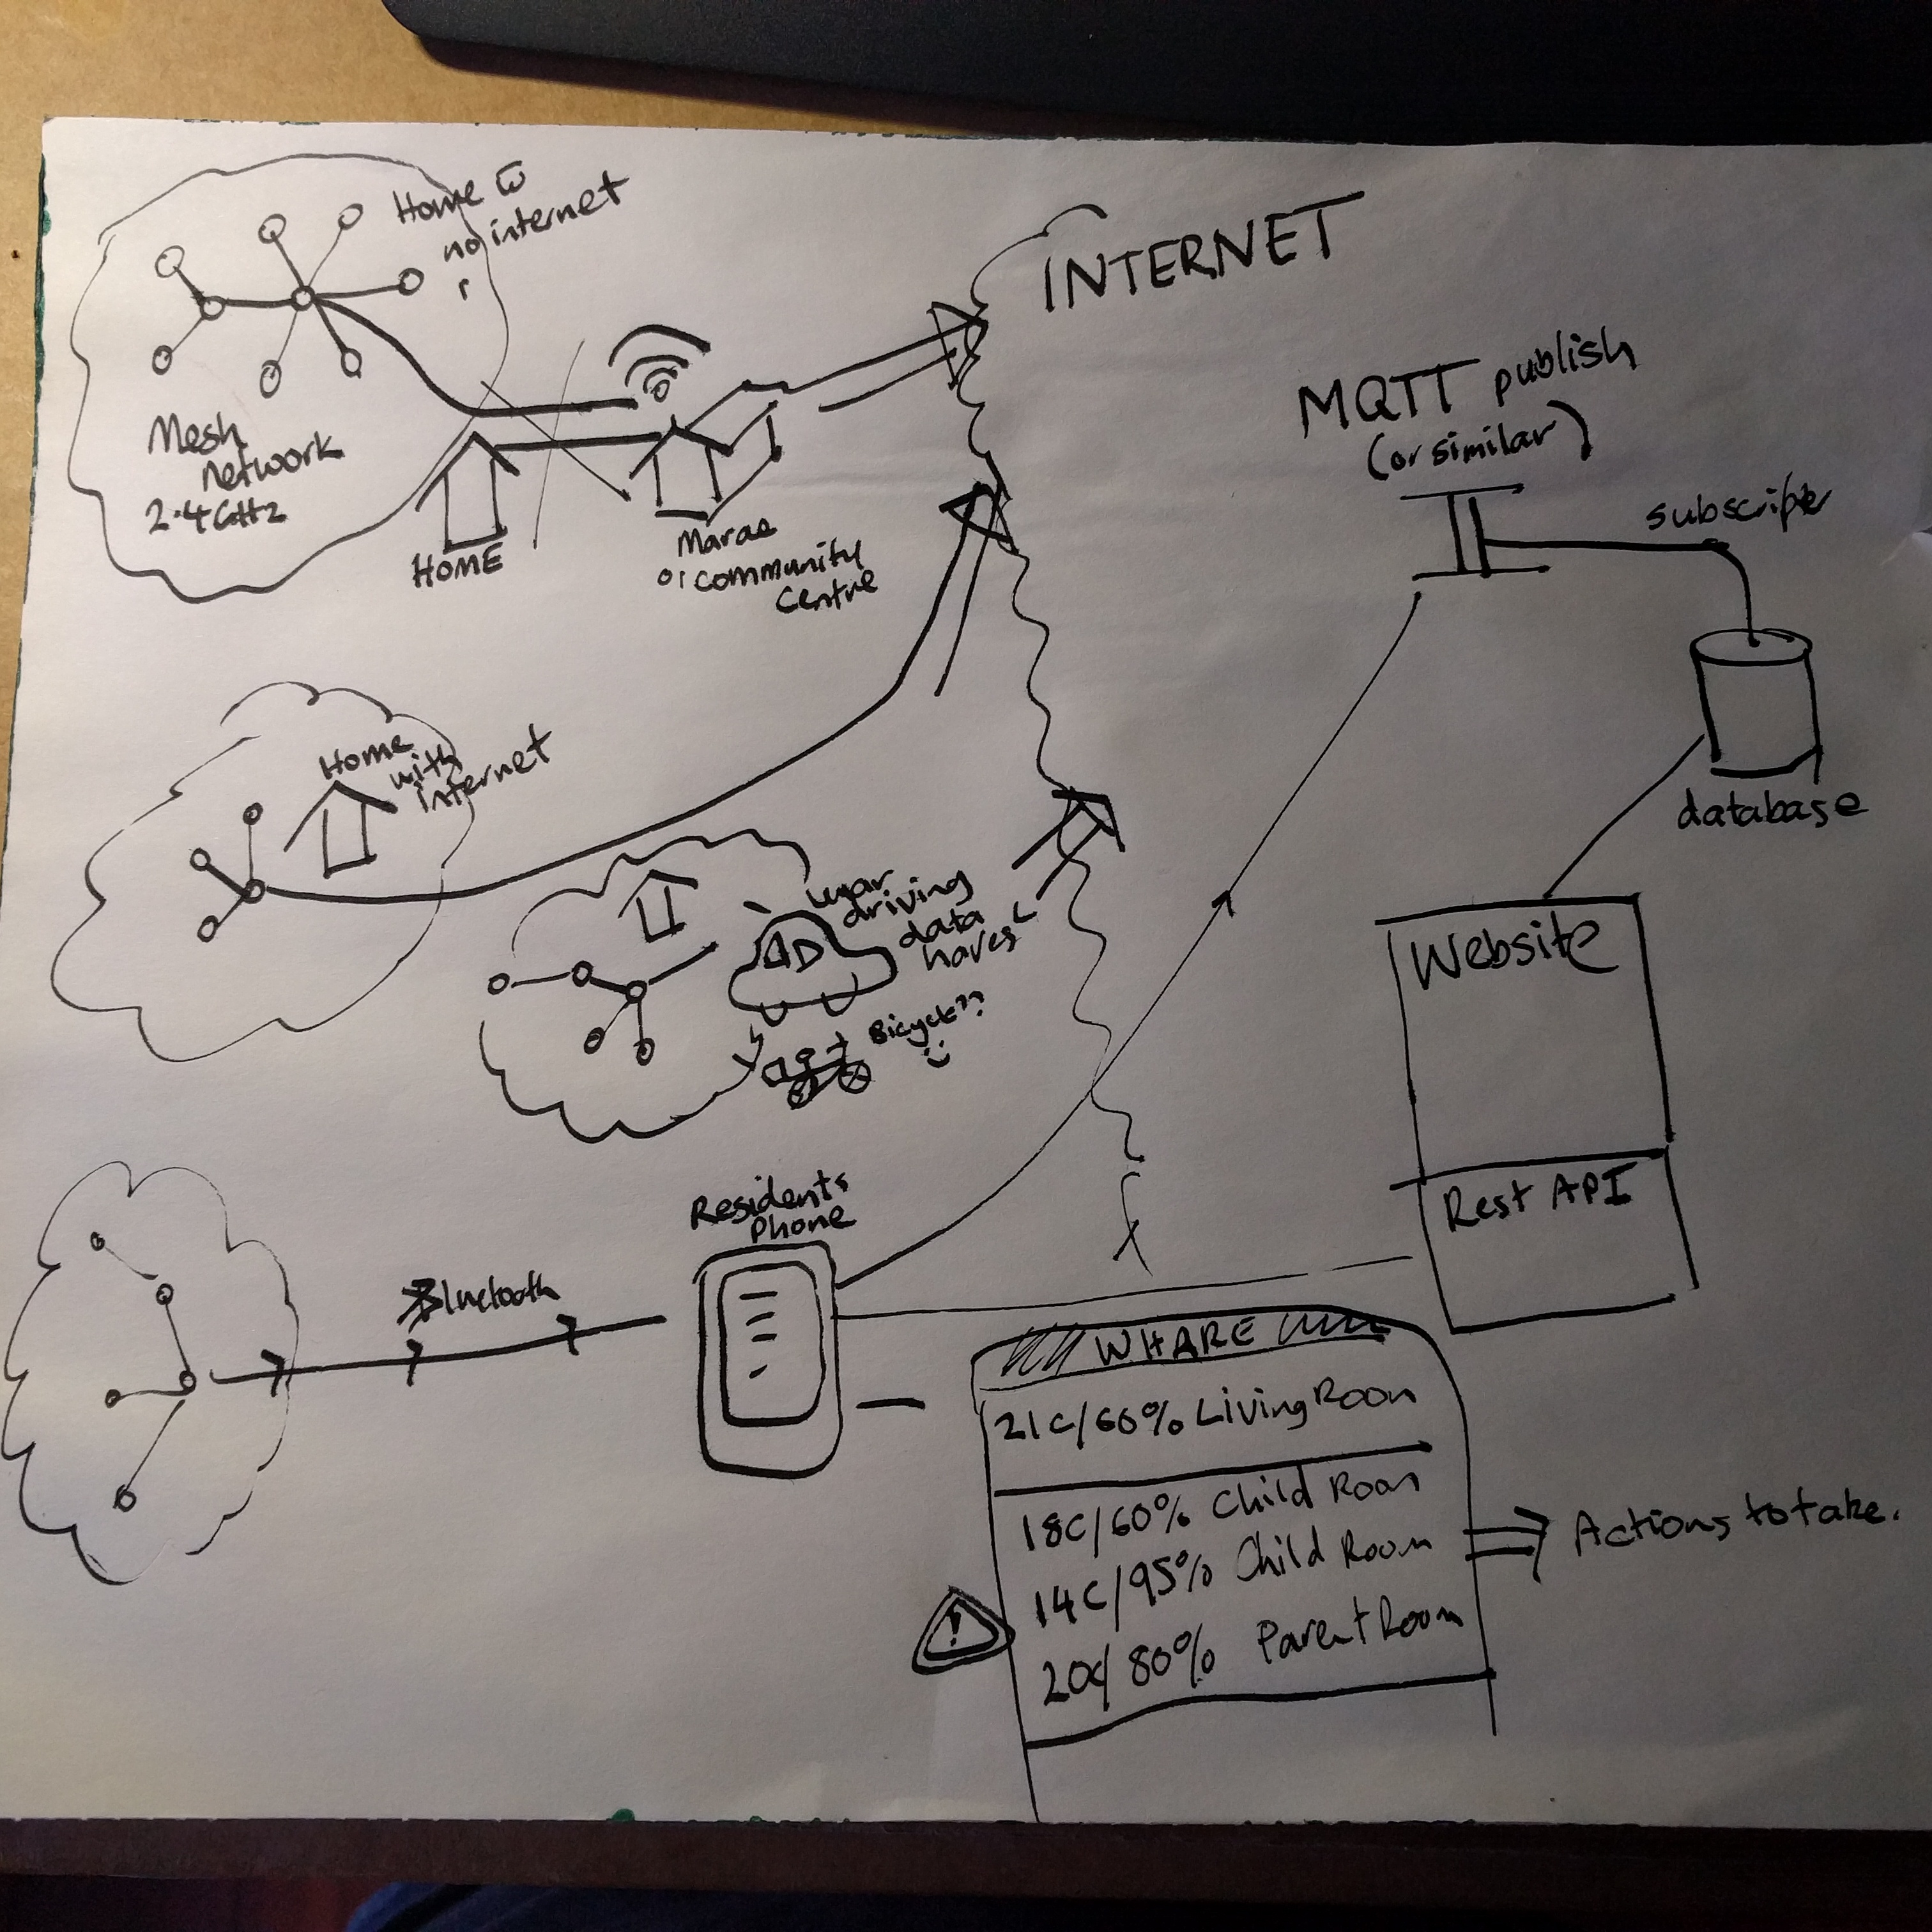 Home w̅
no internet
Mesh
network
2.4GHz
HOME
Marae
or community
centre
INTERNET
MQTT publish
(or similar)
subscribe
database
Home
with
internet
driving
data
Bicycle??
Website
Rest API
Residents
Phone
Bluetooth
WHARE
21C/60% Living Room
18C/60% Child Room
14C/95% Child Room
20C/80% Parent Room
!
Actions to take.